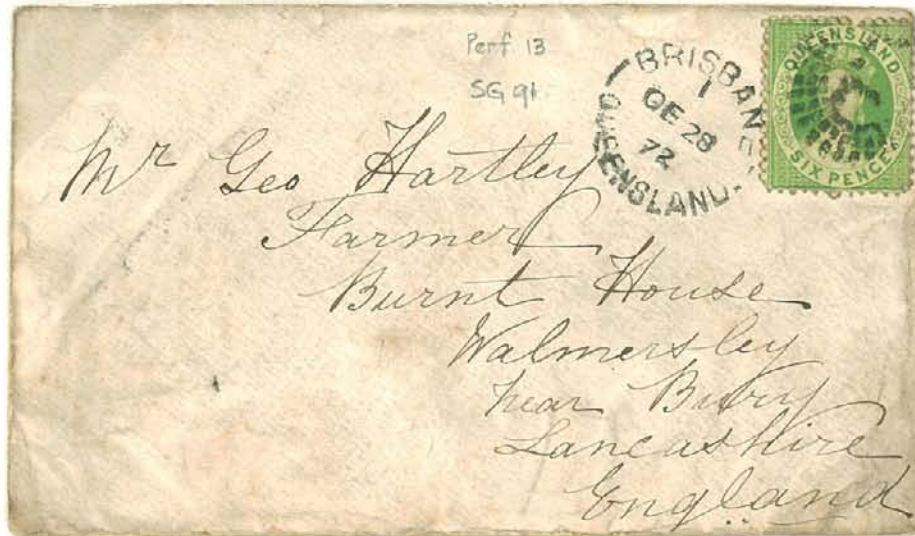 Perf 13
SG 91.
BRISBANE
1
DE 28
72
QUEENSLAND.
QUEENSLAND
SIX PENCE
Mr Geo Hartley
Farmer
Burnt House
Walmersley
near Bury
Lancashire
England